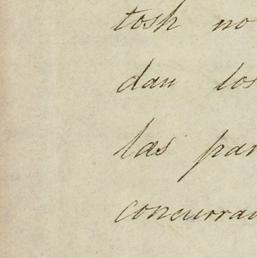 tosh no
dan los
las par
concurran